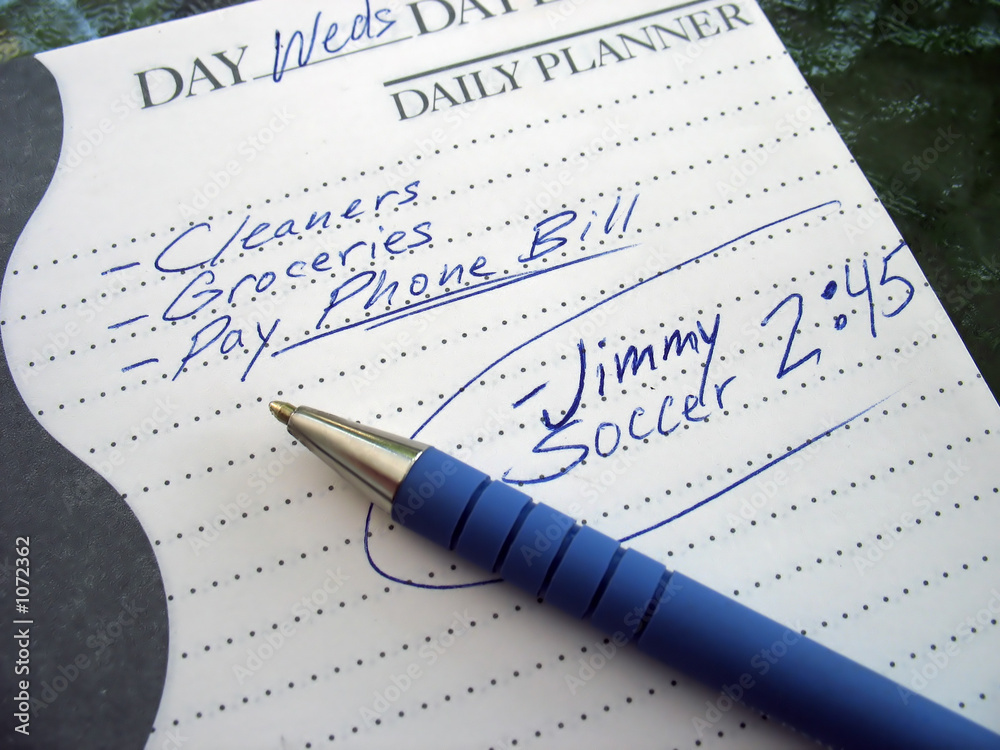 DAY Weds DATE
DAILY PLANNER
- Cleaners
- Groceries
- Pay Phone Bill
- Jimmy 2:45
Soccer
Adobe Stock | #1072362